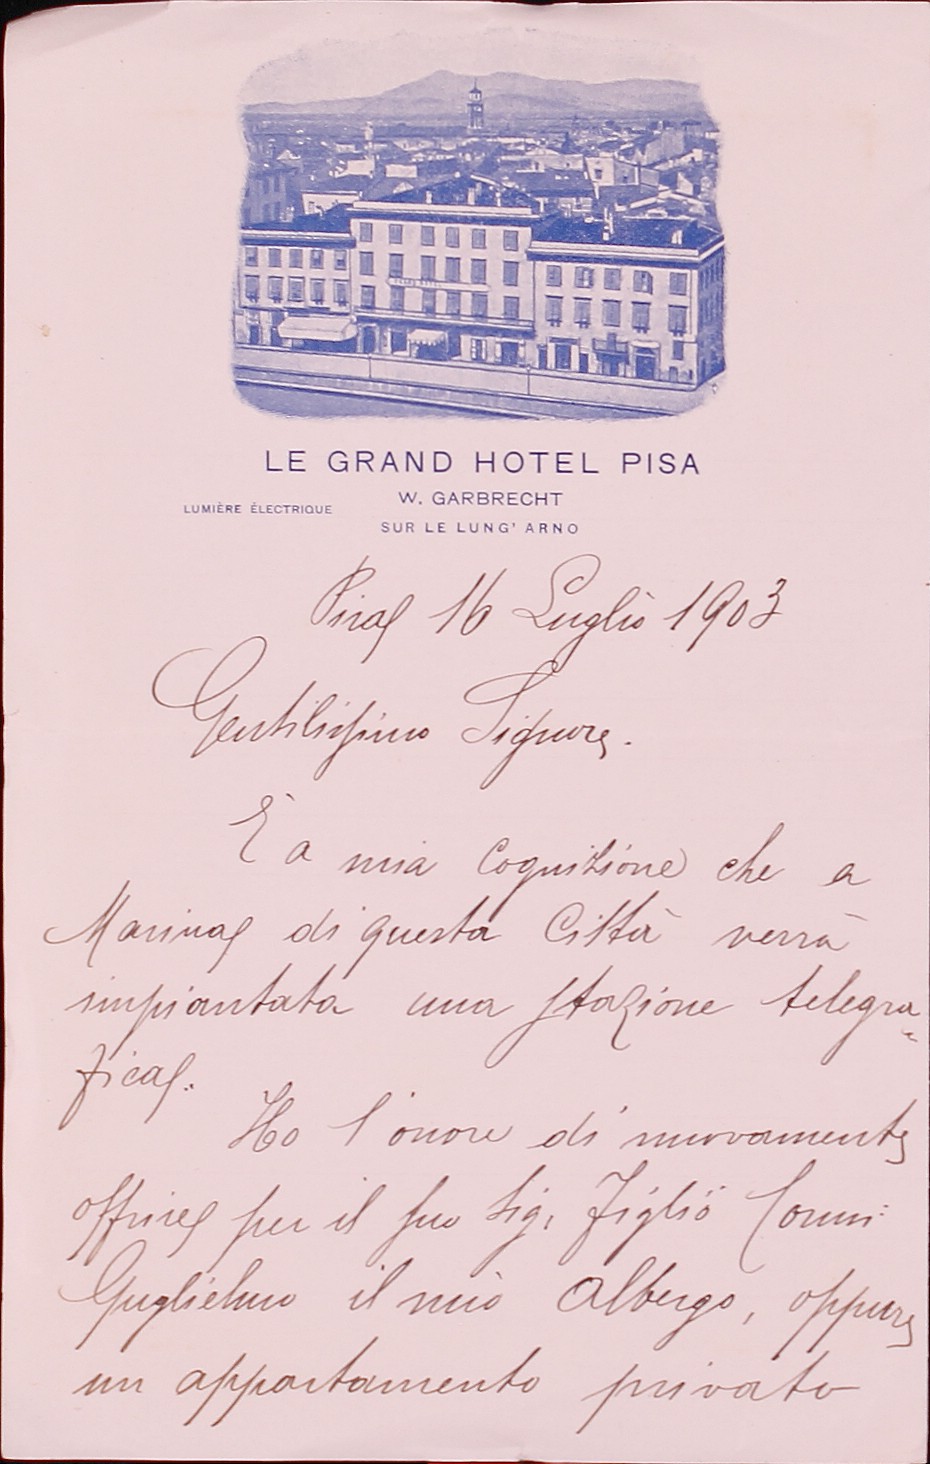 LE GRAND HOTEL PISA
W. GARBRECHT
LUMIÈRE ÉLECTRIQUE
SUR LE LUNG' ARNO
Pisa 16 Luglio 1903
Gentilissimo Signore.
È a mia cognizione che a
Marina di questa Città verrà
impiantata una stazione telegra=
fica.
Ho l'onore di nuovamente
offrire per il suo Sig. Figlio Comm:
Guglielmo il mio Albergo, oppure
un appartamento privato